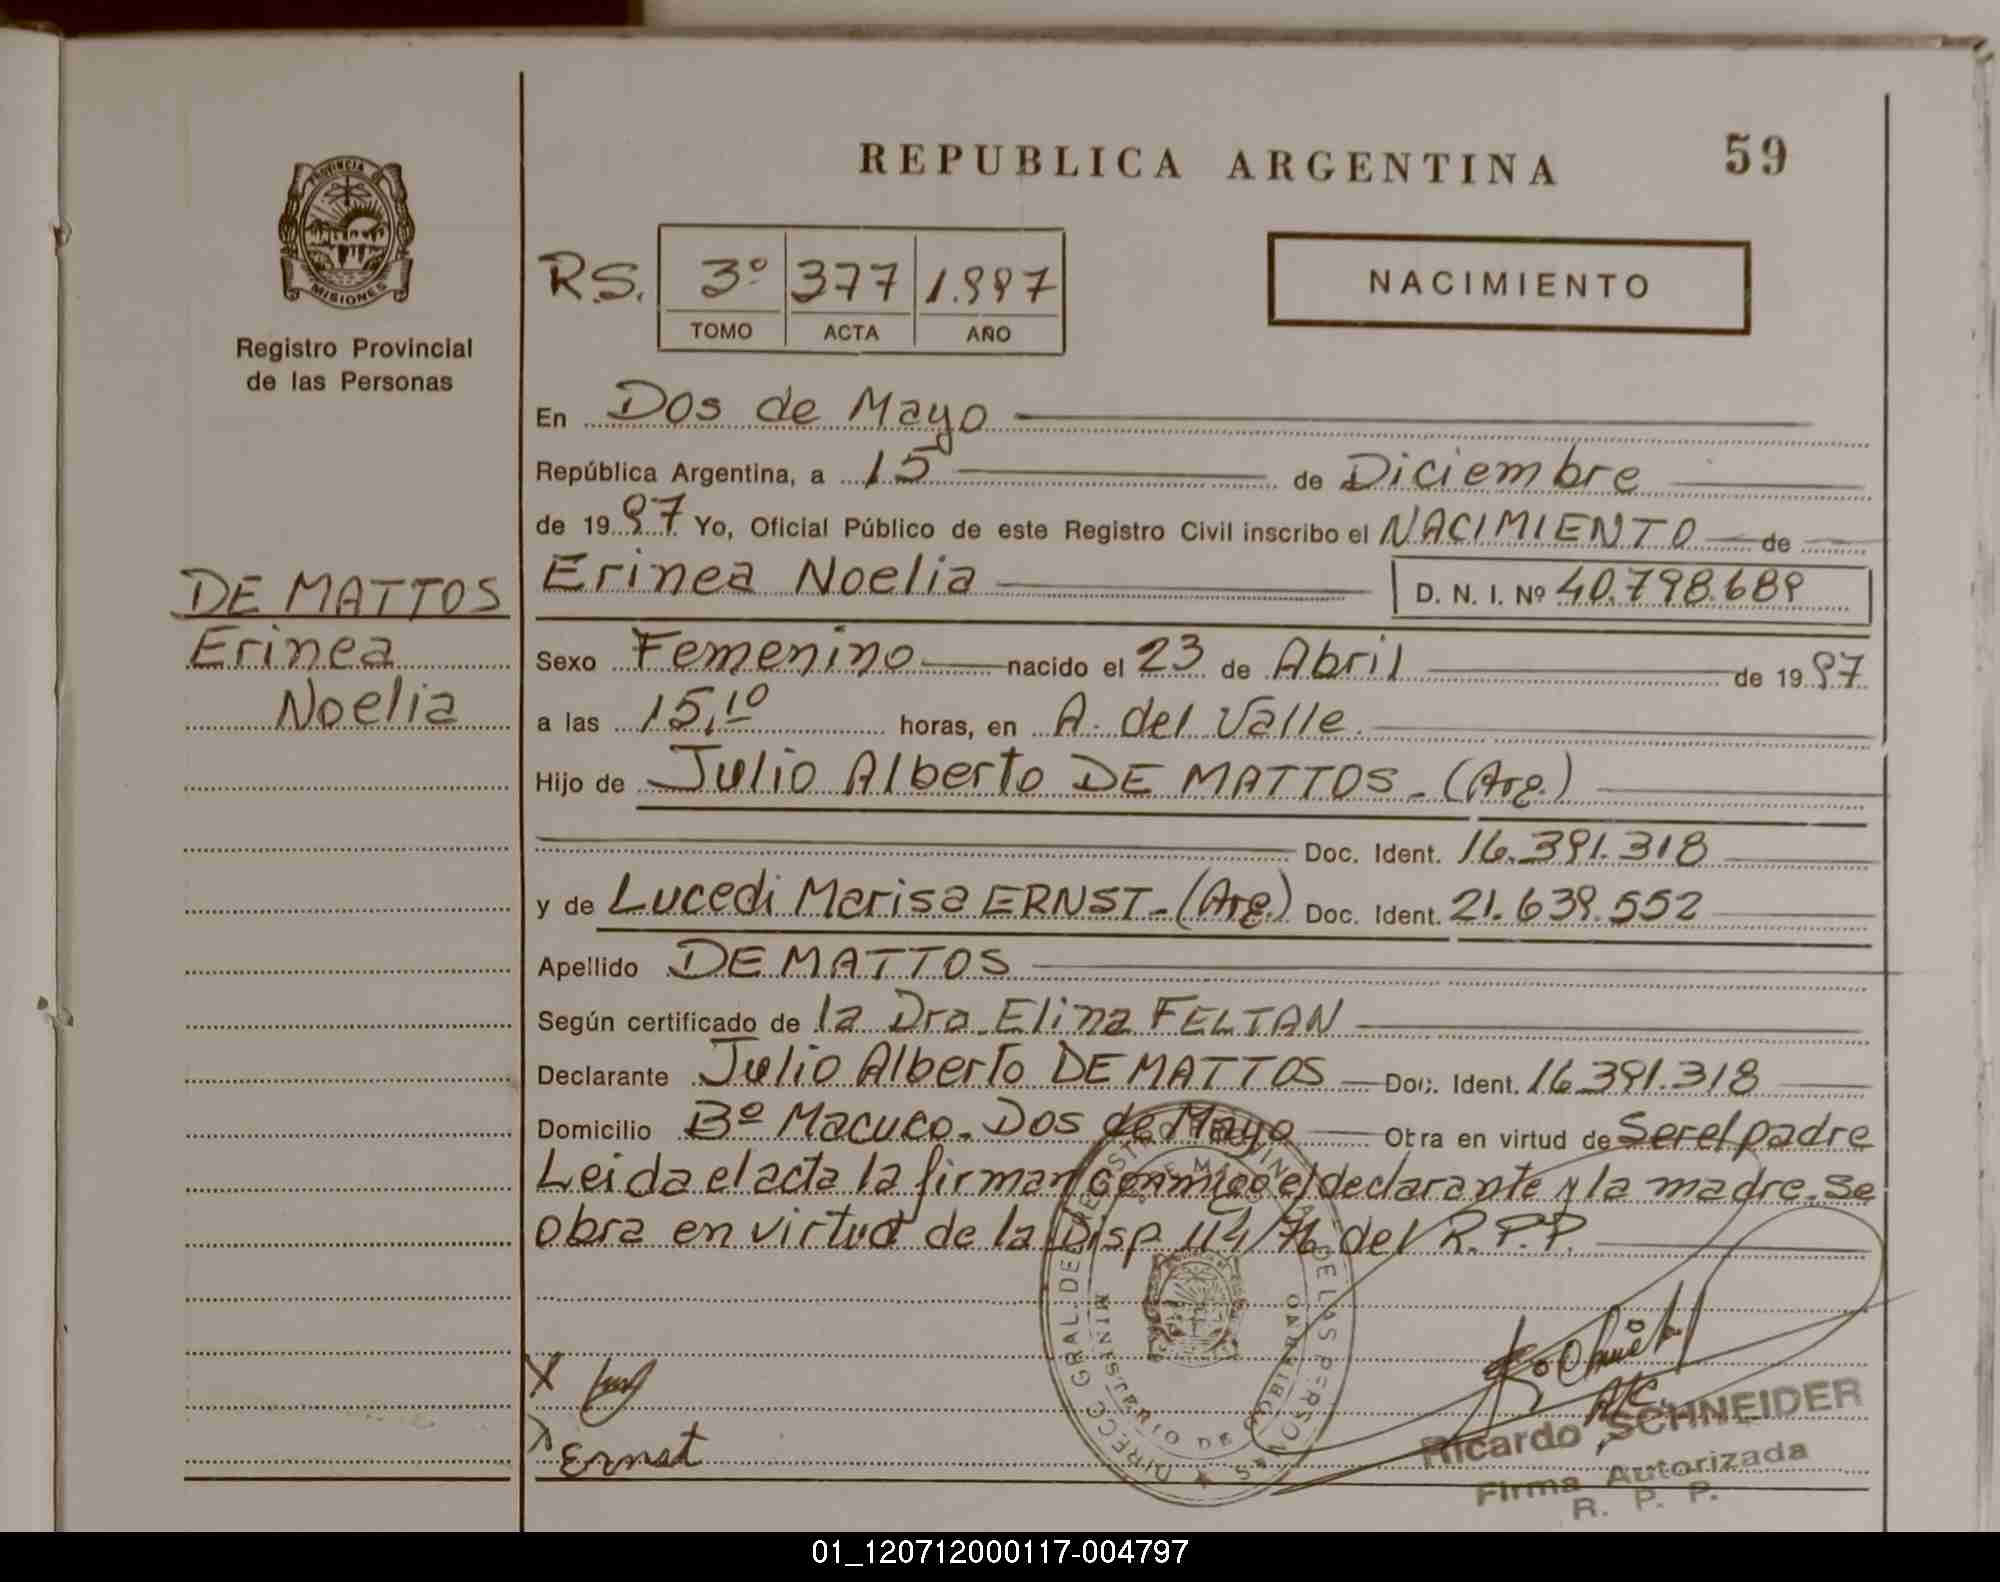 REPUBLICA ARGENTINA
59
PROVINCIA DE
MISIONES
Registro Provincial
de las Personas
R.S.
3º 377 1.997
TOMO ACTA AÑO
NACIMIENTO
En Dos de Mayo
República Argentina, a 15 de Diciembre
de 1997 Yo, Oficial Público de este Registro Civil inscribo el NACIMIENTO de
Erinea Noelia D. N. I. Nº 40.798.689
DE MATTOS
Erinea
Noelia
Sexo Femenino nacido el 23 de Abril de 1997
a las 15,10 horas, en A. del Valle.
Hijo de Julio Alberto DE MATTOS - (Arg.)
Doc. Ident. 16.391.318
y de Lucedi Marisa ERNST - (Arg.) Doc. Ident. 21.639.552
Apellido DE MATTOS
Según certificado de la Dra. Elina FELTAN
Declarante Julio Alberto DE MATTOS Doc. Ident. 16.391.318
Domicilio Bº Macuco - Dos de Mayo Obra en virtud de Ser el padre
Leida el acta la firman conmigo el declarante y la madre. Se
obra en virtud de la Disp 114/76 del R.P.P.
DIRECC GRAL DEL REGISTRO PROVINCIAL DE LAS PERSONAS
MINISTERIO DE GOBIERNO
X
X Ernst
Ricardo SCHNEIDER
Firma Autorizada
R. P. P.
01_120712000117-004797